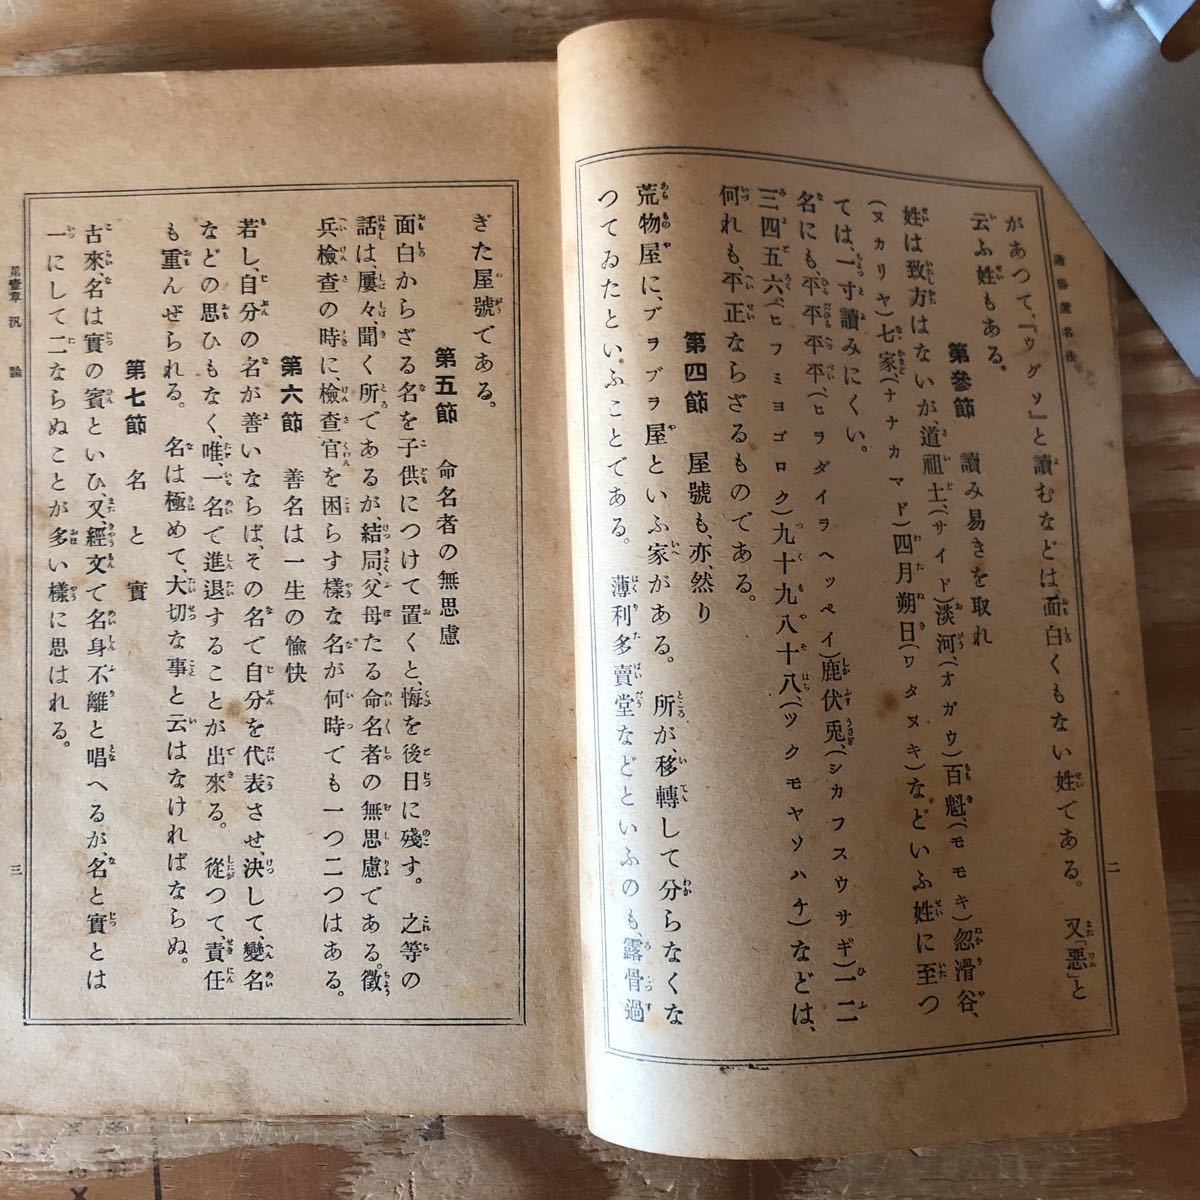 があつて、『ウグソ』と讀むなどは、面白くもない姓である。 又「惡」と
云ふ姓もある。
第參節 讀み易きを取れ
姓は致方はないが、道祖土、(サイド)淡河、(オガウ)百魁、(モモキ)忽滑谷、
(ヌカリヤ)七家、(ナナカマド)四月朔日(ワタヌキ)などいふ姓に至つ
ては、一寸讀みにくい。
名にも、平平平平、(ヒヲダイヲヘッペイ)鹿伏兎、(シカフスウサギ)一二
三四五六(ヒフミヨゴロク)九十九八十八、(ツクモヤソハチ)などは、
何れも、平正ならざるものである。
第四節 屋號も、亦、然り
荒物屋に、ブヲブヲ屋といふ家がある。 所が、移轉して分らなくな
つてゐたといふことである。 薄利多賣堂などといふのも、露骨過
二
ぎた屋號である。
第五節 命名者の無思慮
面白からざる名を子供につけて置くと、悔を後日に殘す。 之等の
話は屢々聞く所であるが結局、父母たる命名者の無思慮である。徵
兵檢査の時に、檢査官を困らす樣な名が何時でも一つ二つはある。
第六節 善名は一生の愉快
若し、自分の名が善いならば、その名で自分を代表させ、決して、變名
などの思ひもなく、唯、一名で進退することが出來る。 從つて、責任
も重んぜられる。 名は極めて、大切な事と云はなければならぬ。
第七節 名と實
古來、名は實の賓といひ、又、經文て名身不離と唱へるが名と實とは
一にして二ならぬことが多い樣に思はれる。
第壹章 汎論
三